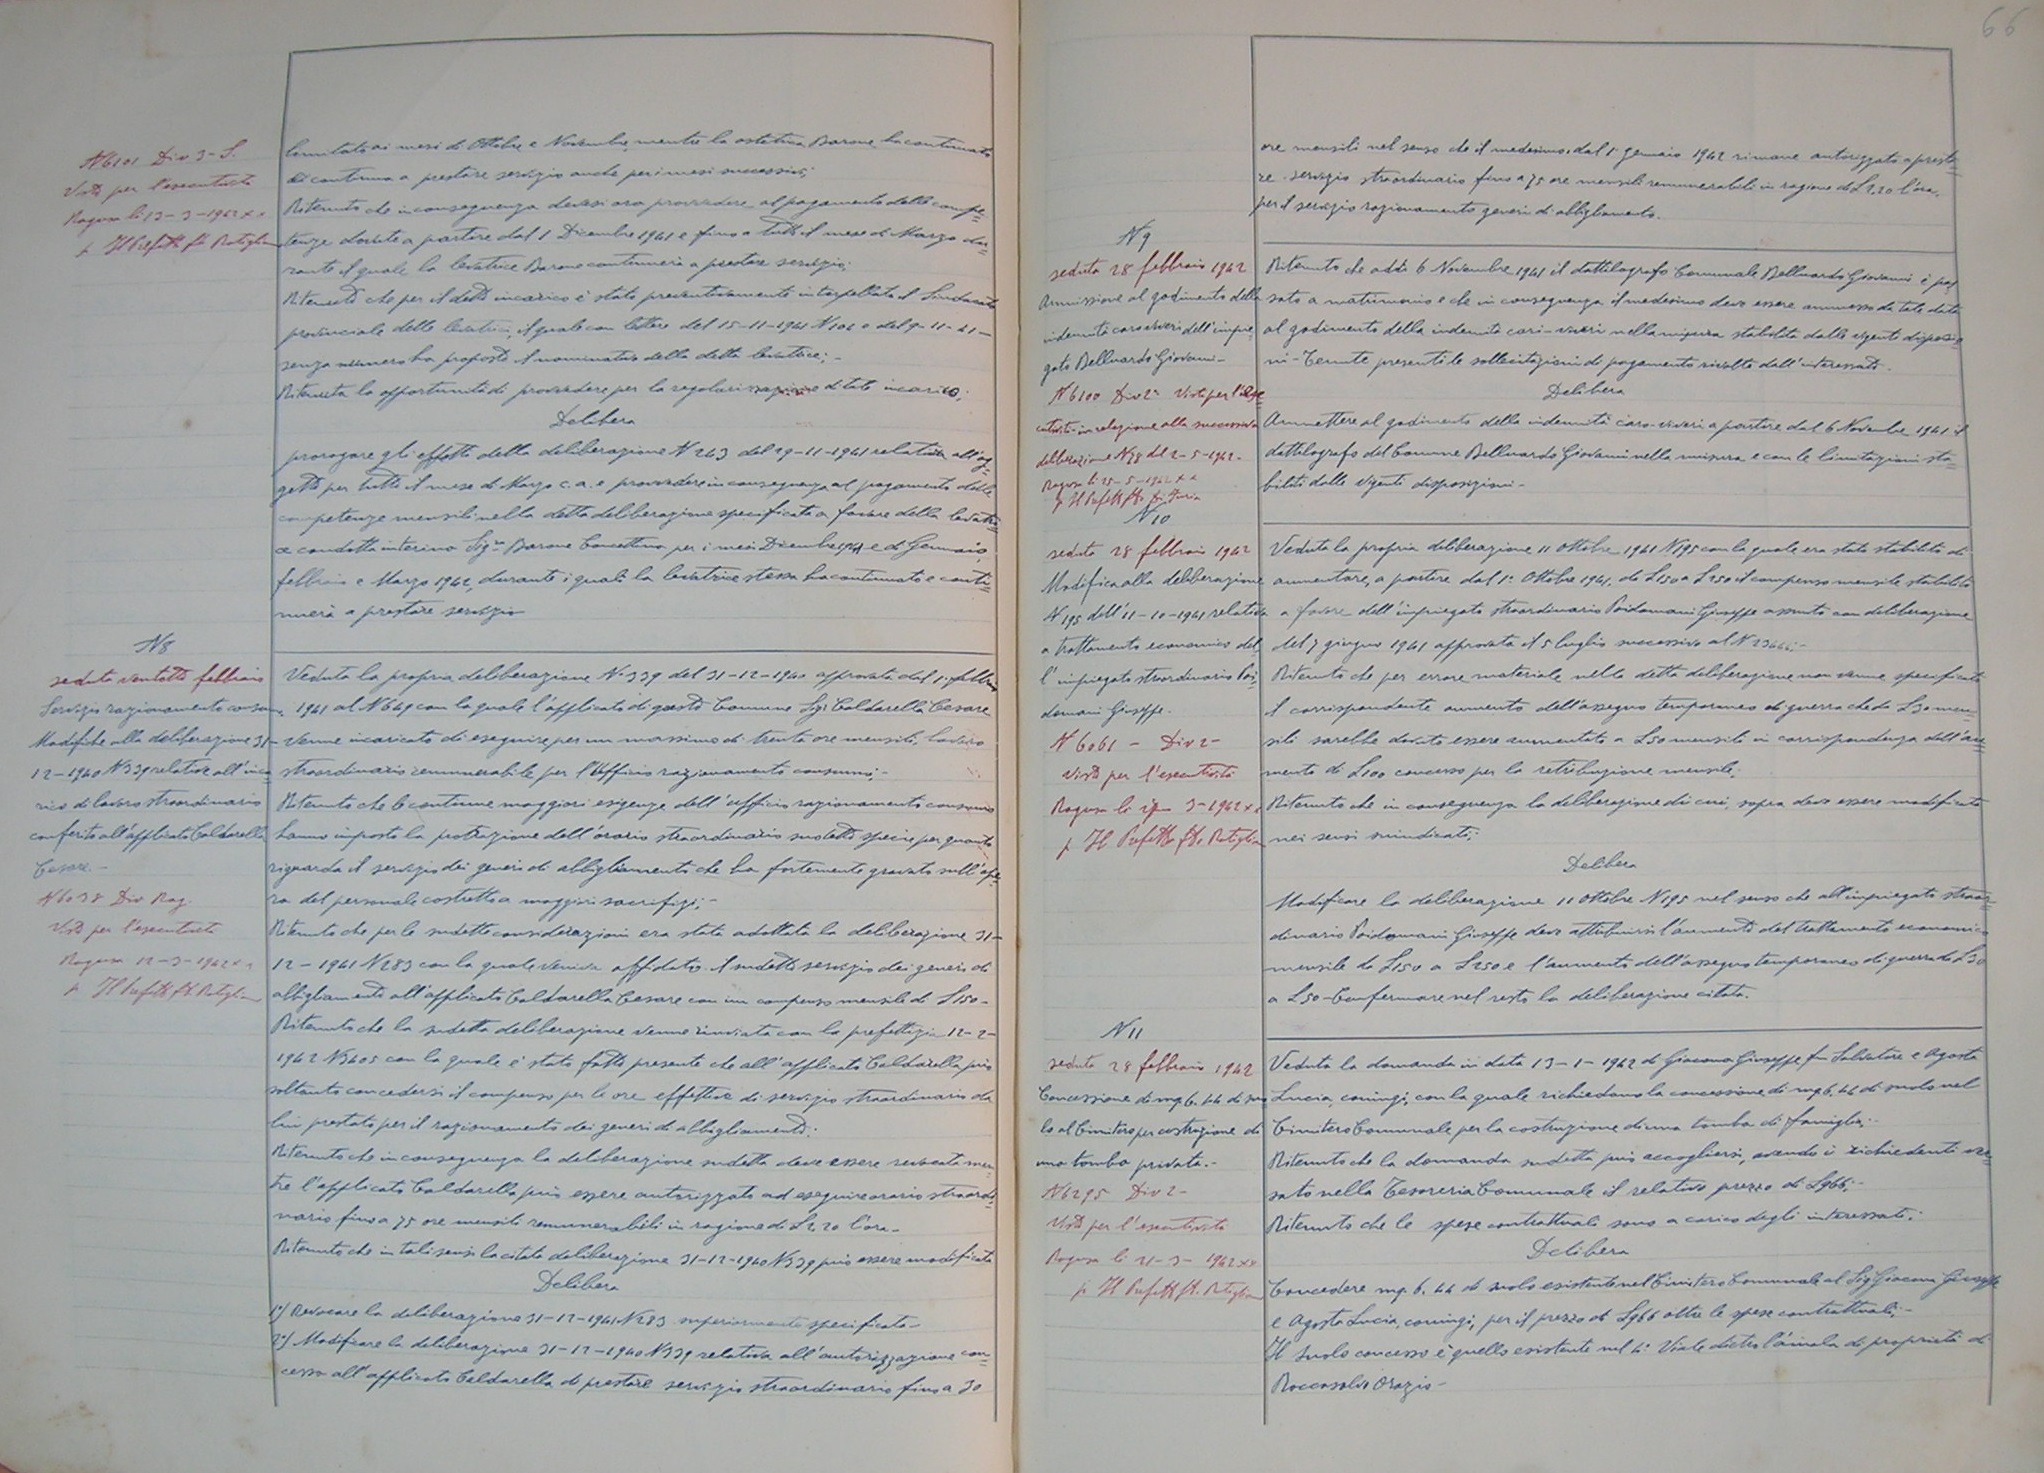 N 6101 Div 3- S.
Visto per l'esecutività
Ragusa li 13-3-1942 XX
p Il Prefetto fto Ratiglia
limitato ai mesi di Ottobre e Novembre, mentre la ostetrica Barone ha continuato
e continua a prestare servizio anche per i mesi successivi;
Ritenuto che in conseguenza devesi ora provvedere al pagamento delle compe=
tenze dovute a partire dal 1 Dicembre 1941 e fino a tutto il mese di Marzo du=
rante il quale la levatrice Barone continuerà a prestare servizio;
Ritenuto che per il detto incarico è stato preventivamente interpellato il Sindacato
provinciale delle levatrici, il quale con lettere del 15-11-1941 N 106 e del 9-11-41-
senza numero ha proposto il nominativo della detta levatrice;-
Ritenuta la opportunità di provvedere per la regolarizzazione di tale incarico;
Delibera
prorogare gli effetti della deliberazione N 263 del 29-11-1941 relativa all'og=
getto per tutto il mese di Marzo c.a. e provvedere in conseguenza al pagamento delle
competenze mensili nella detta deliberazione specificata a favore della levatri=
ce condotta interina Sig.ra Barone Concettina per i mesi Dicembre 1941 e di Gennaio,
febbraio e Marzo 1942, durante i quali la levatrice stessa ha continuato e conti=
nuerà a prestare servizio
N 8
seduta ventotto febbraio
Servizio razionamento consumi.
Modifiche alla deliberazione 31-
12-1940 N 339 relativa all'inca
rico di lavoro straordinario
conferito all'applicato Caldarella
Cesare.-
N 6038 Div Rag.
Visto per l'esecutività
Ragusa 12-3-1942 XX
p Il Prefetto fto Ratiglia
Veduta la propria deliberazione N. 339 del 31-12-1940 approvata dal 1. febbraio
1941 al N 649 con la quale l'applicato di questo Comune Sig. Caldarella Cesare
venne incaricato di eseguire per un massimo di trenta ore mensili, lavoro
straordinario remunerabile per l'Ufficio razionamento consumi;-
Ritenuto che le continue maggiori esigenze dell'ufficio razionamento consumi
hanno imposto la protrazione dell'orario straordinario suddetto specie per quanto
riguarda il servizio dei generi di abbigliamento che ha fortemente gravato sull'ope=
ra del personale costretto a maggiori sacrifizi;-
Ritenuto che per le sudette considerazioni era stata adottata la deliberazione 31-
12-1941 N 283 con la quale veniva affidato il sudetto servizio dei generi di
abbigliamento all'applicato Caldarella Cesare con un compenso mensile di £150-
Ritenuto che la sudetta deliberazione venne rinviata con la prefettizia 12-2-
1942 N 3605 con la quale è stato fatto presente che all'applicato Caldarella può
soltanto concedersi il compenso per le ore effettive di servizio straordinario da
lui prestato per il razionamento dei generi di abbigliamento;
Ritenuto che in conseguenza la deliberazione sudetta deve essere revocata men
tre l'applicato Caldarella può essere autorizzato ad eseguire orario straordi
nario fino a 75 ore mensili remunerabili in ragione di £2,20 l'ora-
Ritenuto che in tali sensi la citata deliberazione 31-12-1940 N 339 può essere modificata
Delibera
1°) Revocare la deliberazione 31-12-1941 N 283 superiormente specificata-
2°) Modificare la deliberazione 31-12-1940 N 339 relativa all'autorizzazione con=
cessa all'applicato Caldarella di prestare servizio straordinario fino a 30
66
ore mensili nel senso che il medesimo, dal 1° gennaio 1942 rimane autorizzato a presta=
re servizio straordinario fino a 75 ore mensili remunerabili in ragione di £2,20 l'ora,
per il servizio razionamento generi di abbigliamento.
N 9
seduta 28 febbraio 1942
Ammissione al godimento della
indennità caro viveri dell'impie
gato Belluardo Giovanni-
N 6100 Div 2ª Visto per l'ese
cutività in relazione alla successiva
deliberazione N 78 del 2-5-1942-
Ragusa li 25-5-1942 XX
p Il Prefetto fto
Ritenuto che addì 6 Novembre 1941 il dattilografo Comunale Belluardo Giovanni è pas
sato a matrimonio e che in conseguenza il medesimo deve essere ammesso da tale data
al godimento della indennità caro-viveri nella misura stabilita dalle vigenti disposizio
ni- Tenute presenti le sollecitazioni di pagamento rivolte dall'interessato.
Delibera
Ammettere al godimento della indennità caro-viveri a partire dal 6 Novembre 1941 il
dattilografo del Comune Belluardo Giovanni nella misura e con le limitazioni sta=
biliti dalle vigenti disposizioni-
N 10
seduta 28 febbraio 1942
Modifica alla deliberazione
N 195 dell'11-10-1941 relativa
a trattamento economico del=
l'impiegato straordinario Poi=
domani Giuseppe.
N 6061 - Div 2-
Visto per l'esecutività
Ragusa li 3-1942 XX
p Il Prefetto fto Ratiglia
Veduta la propria deliberazione 11 Ottobre 1941 N 195 con la quale era stato stabilito di
aumentare, a partire dal 1° Ottobre 1941, da £150 a £250 il compenso mensile stabilito
a favore dell'impiegato straordinario Poidomani Giuseppe assunto con deliberazione
del 7 giugno 1941 approvata il 5 luglio successivo al N 23666;-
Ritenuto che per errore materiale nella detta deliberazione non venne specificato
il corrispondente aumento dell'assegno temporaneo di guerra che da £30 men=
sili sarebbe dovuto essere aumentato a £50 mensili in corrispondenza dell'au=
mento di £100 concesso per la retribuzione mensile.
Ritenuto che in conseguenza la deliberazione di cui sopra deve essere modificata
nei sensi suindicati;
Delibera
Modificare la deliberazione 11 Ottobre N 195 nel senso che all'impiegato straor=
dinario Poidomani Giuseppe deve attribuirsi l'aumento del trattamento economico
mensile da £150 a £250 e l'aumento dell'assegno temporaneo di guerra da £30
a £50- Confermare nel resto la deliberazione citata.
N 11
seduta 28 febbraio 1942
Concessione di mq. 6.44 di suo
lo al Cimitero per costruzione di
una tomba privata.-
N 6295 Div 2-
Visto per l'esecutività
Ragusa li 21-3-1942 XX
p Il Prefetto fto Ratiglia
Veduta la domanda in data 13-1-1942 di Giacona Giuseppe fu Salvatore e Agosta
Lucia, coniugi, con la quale richiedono la concessione di mq. 6.44 di suolo nel
Cimitero Comunale per la costruzione di una tomba di famiglia;-
Ritenuto che la domanda sudetta può accogliersi, avendo i richiedenti ver=
sato nella Tesoreria Comunale il relativo prezzo di £966;-
Ritenuto che le spese contrattuali sono a carico degli interessati;
Delibera
Concedere mq. 6.44 di suolo esistente nel Cimitero Comunale al Sig. Giacona Giuseppe
e Agosta Lucia, coniugi, per il prezzo di £966 oltre le spese contrattuali;-
Il suolo concesso è quello esistente nel 4° Viale dietro l'aiuola di proprietà di
Roccasalva Orazio-